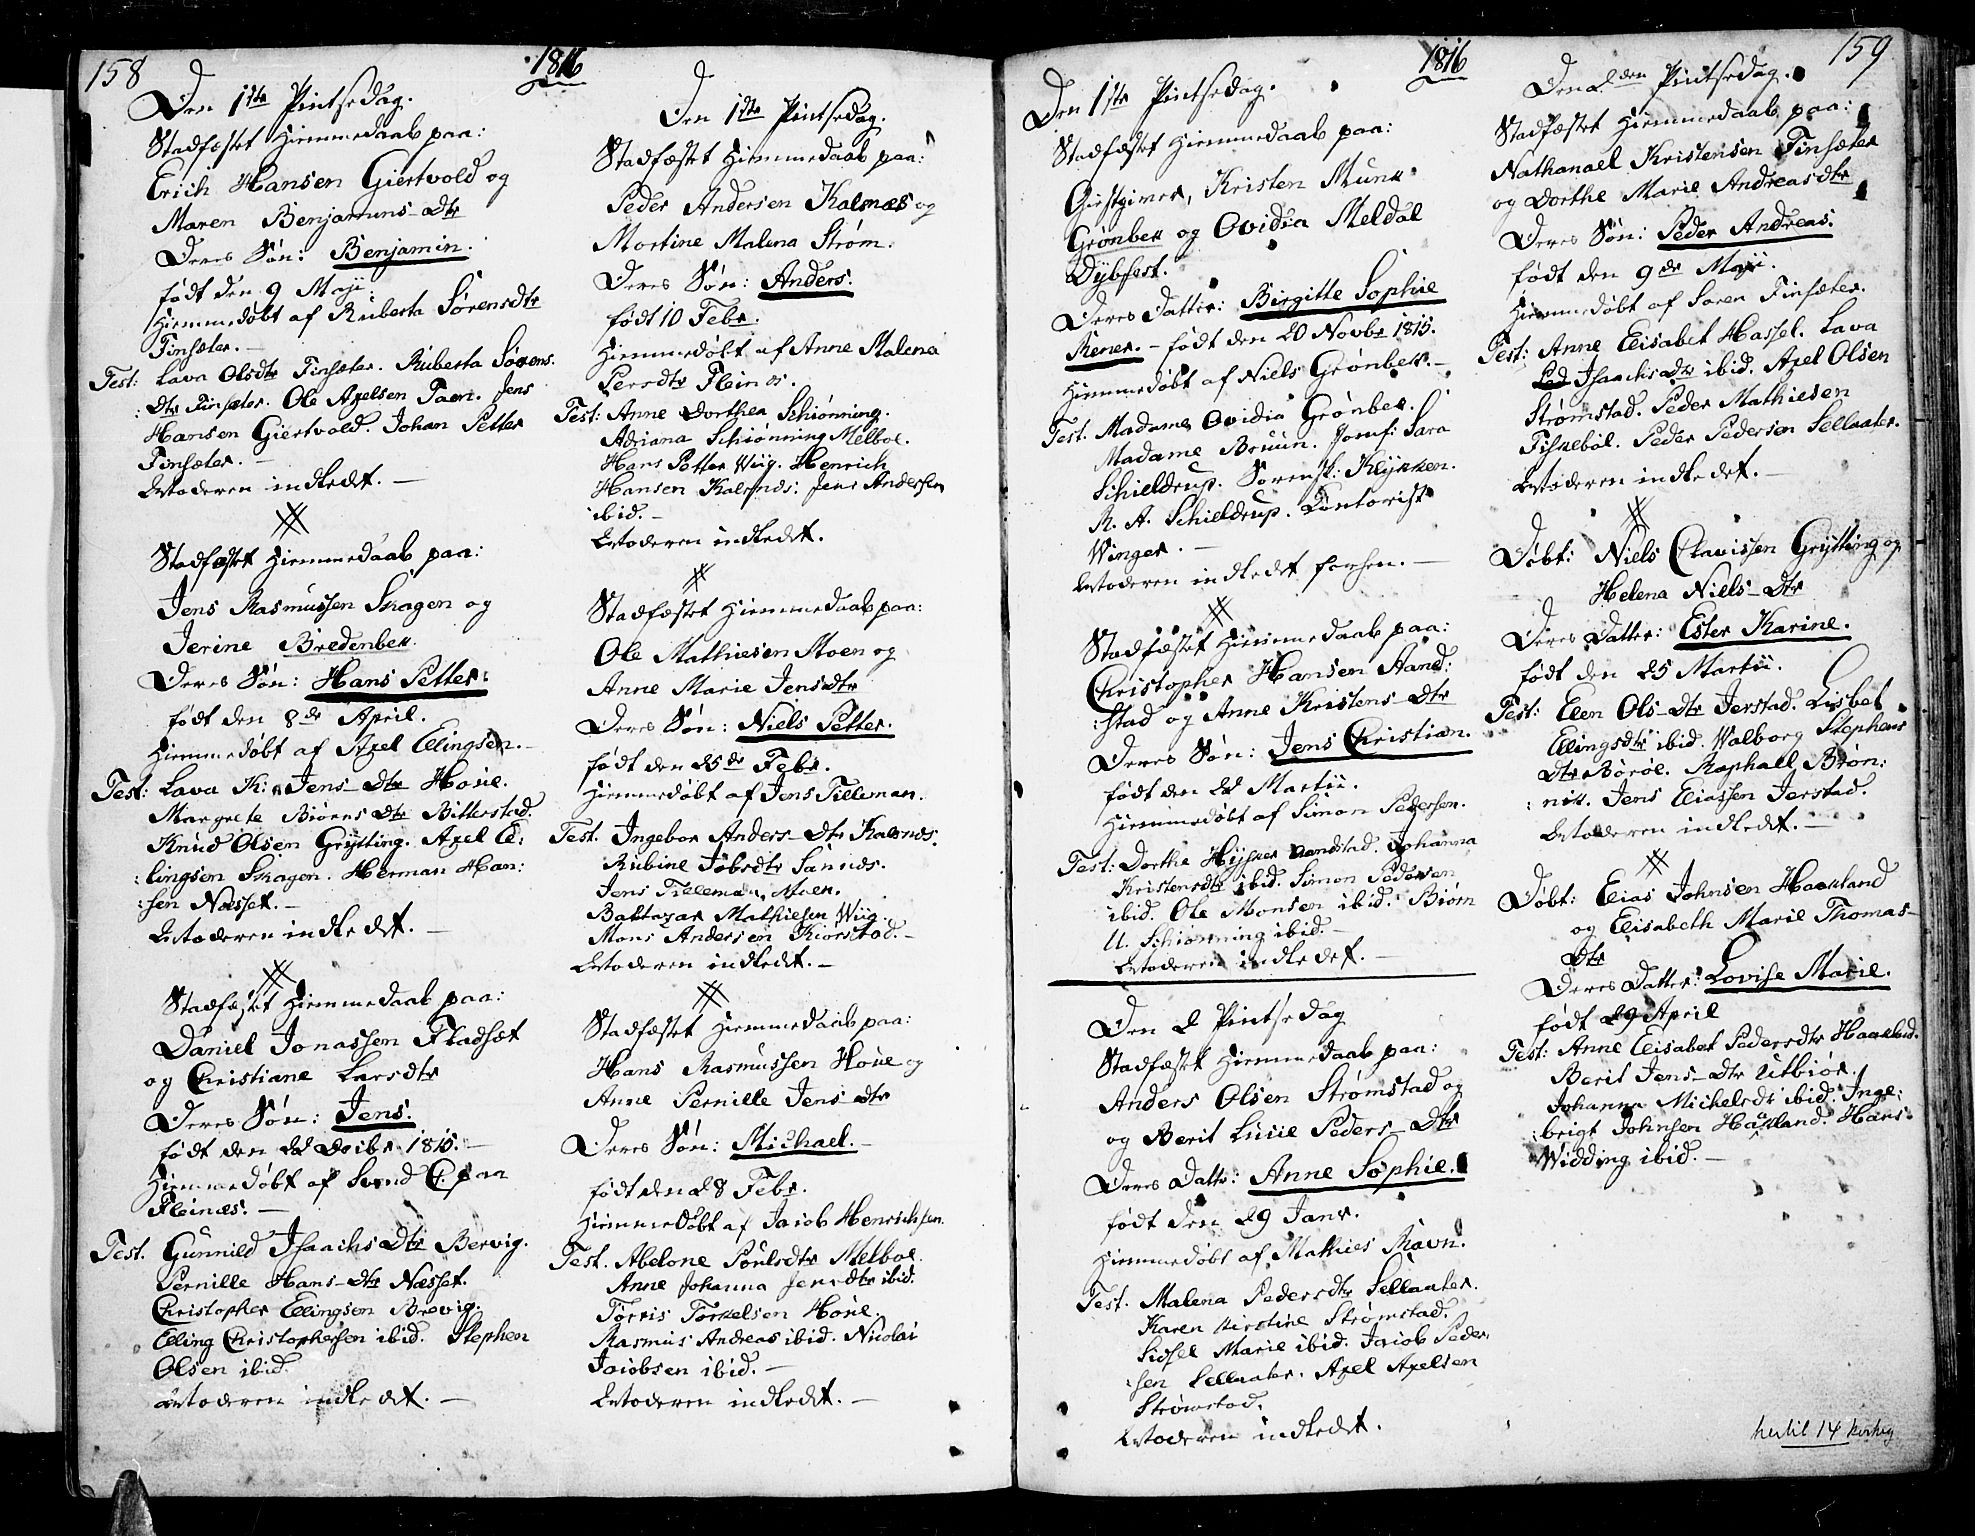 158
1816
Den 1ste Pintsedag.
Stadfæstet Hiemmedaab paa:
Erich Hansen Giertvold og
Maren Benjamins-Dtr
Deres Søn: Benjamin.
født den 9 Maji.
Hiemmedøbt af Ruberta Sørensdtr
Finsæter.
Test: Lava Olsdtr Finsæter. Ruberta Sørens-
Dtr Finsæter. Ole Axelsen Taen. Jens
Hansen Giertvold. Johan Petter
Finsæter. -
Moderen indledet. -
Stadfæstet Hiemmedaab paa:
Jens Rasmussen Skagen og
Jerine Bredenbek
Deres Søn: Hans Petter:
født den 8de April.
Hiemmedøbt af Axel Ellingsen. -
Test: Lava K: Jens-Dtr Houe.
Margrete Biørns Dtr Bitterstad.
Knud Olsen Grytting. Axel El:
:lingsen Skagen. Herman Han:
:sen Næsset. -
Moderen indledet. -
Stadfæstet Hiemmedaab paa:
Daniel Jonassen Fladsæt
og Christiane Larsdtr
Deres Søn: Jens.
født den 22 Decibr 1815. -
Hiemmedøbt af Svend C. paa
Fleinæs. -
Test. Gunnild Isaachs Dtr Bervig.
Pernille Hans-Dtr Næsset.
Christopher Ellingsen Brevig.
Elling Christophersen ibid. Stephen
Olsen ibid.
Moderen indledet. -
Den 1ste Pintsedag.
Stadfæstet Hiemmedaab paa:
Peder Andersen Kalsnæs og
Martine Malena Strøm.
Deres Søn: Anders.
født 10 Febr.
Hiemmedøbt af Anne Malena
Persdtr Fleinæs.
Test: Anne Dorthea Schiønning.
Adriana Schiønning Melboe.
Hans Petter Wiig. Henrich
Hansen Kalsnæs: Jens Andersen
ibid. -
Moderen indledet.
Stadfæstet Hiemmedaab paa:
Ole Mathiesen Moen og
Anne Marie Jensdtr
Deres Søn: Niels Petter.
født den 25de Febr.
Hiemmedøbt af Jens Tilleman.
Test. Ingebor Anders-Dtr Kalsnæs.
Rubine Jobsdtr Sannæs.
Jens Tilleman, Moen.
Baltazar Mathiesen Wiig.
Mons Andersen Kiørstad. -
Moderen indledet. -
Stadfæstet Hiemmedaab paa:
Hans Rasmussen Houe og
Anne Pernille Jens-Dtr
Deres Søn: Michael. -
født den 28 Febr.
Hiemmedøbt af Jacob Henrichsen.
Test. Abelone Poulsdtr Melboe.
Anne Johanna Jensdtr ibid.
Torris Torkelsen Houe.
Rasmus Andreas ibid. Nicolai
Jacobsen ibid. -
Moderen indledet. -
1816
159
Den 1ste Pintsedag.
Stadfæstet Hiemmedaab paa:
Giestgiver, Kristen Munk
Grønbek og Ovidia Meldal
Dybfest.
Deres Datter: Birgitte Sophie
Rener. - født den 20 Novbr 1815.
Hiemmedøbt af Niels Grønbek. -
Test. Madame Ovidia Grønbek.
Madame Bruun. Jomf: Sara
Schieldrup. Sorensk: Klykken.
R. A. Schieldrup. Contorist
Winger. -
Moderen indledet forhen. -
Stadfæstet Hiemmedaab paa:
Christopher Hansen Aand:
:stad og Anne Kristens-Dtr
Deres Søn: Jens Christian.
født den 22 Martii.
Hiemmedøbt af Simon Pedersen.
Test: Dorthe Aandstad. Johanna
Kristensdtr ibid. Simon Pedersen
ibid. Ole Monsen ibid. Biørn
U. Schiønning ibid. -
Moderen indledet. -
Den 2 Pintsedag
Stadfæstet Hiemmedaab paa:
Anders Olsen Strømstad og
og Berit Lucie Peders-Dtr
Deres Dattr: Anne Sophie.
født den 29 Janr.
Hiemmedøbt af Mathies Ravn.
Test. Malena Pedersdtr Sellaater.
Karen Kirstine Strømstad.
Sidsel Marie ibid. Jacob Peder:
:sen Sellaater. Axel Axelsen
Strømstad.
Moderen indledet.
Den 2den Pintsedag.
Stadfæstet Hiemmedaab paa:
Nathanael Kristensen Finsæter
og Dorthe Marie Andreasdtr
Deres Søn: Peder Andreas.
født den 9de Maji.
Hiemmedøbt af Soren Finsæter.
Test: Anne Elisabet Hassel. Lava
Isaachs Dtr ibid. Axel Olsen
Strømstad. Peder Mathiesen
Fiskebøl. Peder Pedersen Sellaater.
Moderen indledet. -
Døbt: Niels Clavissen Grytting og
Helena Niels-Dtr
Deres Datter: Ester Karine.
født den 25 Martii.
Test: Elen Ols-Dtr Jerstad. Lisbet
Ellingsdtr ibid. Walborg Stephens
Dtr Børøe. Raphael Brøn:
:nik. Jens Eliassen Jerstad.
Moderen indledet. -
Døbt: Elias Johnsen Haakland
og Elisabeth Marie Thomas-
Dtr
Deres Datter: Lovise Marie.
født 29 April
Test: Anne Elisabet Pedersdtr Haakland.
Berit Jens-Dtr Utbiør.
Johanna Michelsdt ibid. Inge:
:brigt Johnsen Haakland. Hans
Widding ibid. -
hertil 14